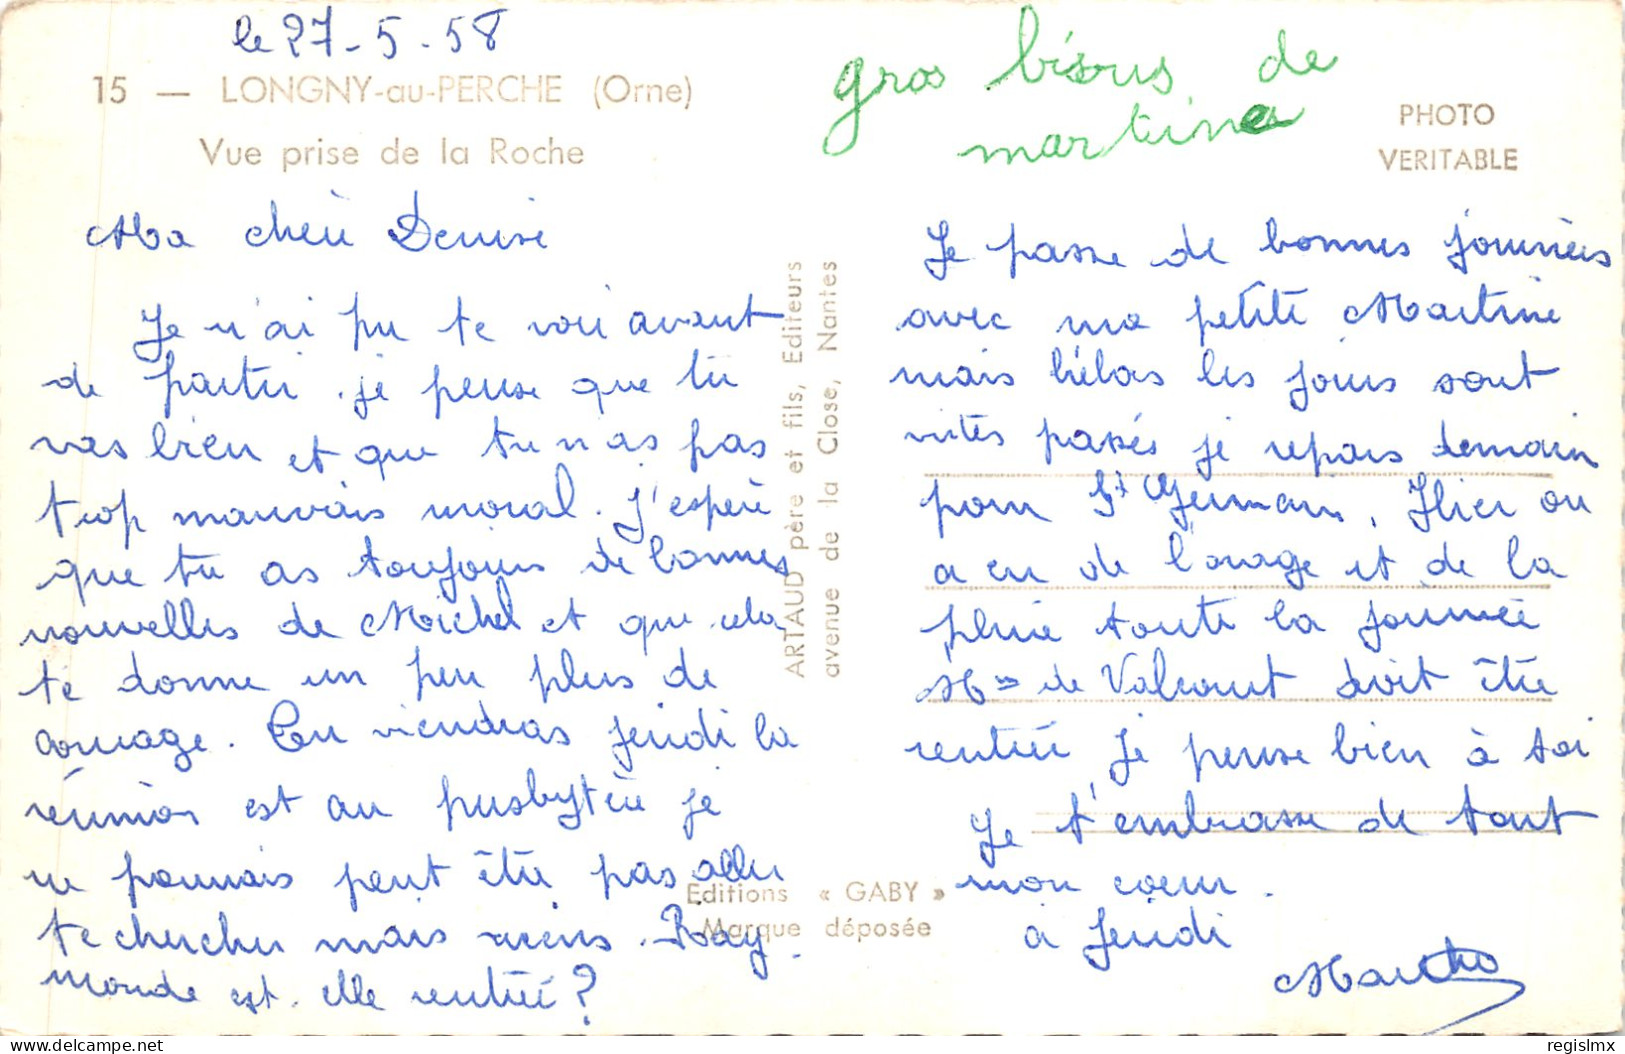 le 27-5-58
15 — LONGNY-au-PERCHE (Orne)
Vue prise de la Roche
gros bisous de
martine
PHOTO
VERITABLE
Ma chère Denise
Je n'ai pu te voir avant
de partir. je pense que tu
vas bien et que tu n'as pas
trop mauvais moral. J'espère
que tu as toujours de bonnes
nouvelles de Michel et que cela
te donne un peu plus de
courage. Tu viendras jeudi la
réunion est au presbytère je
ne pourrais peut être pas aller
te chercher mais viens. Ray-
monde est-elle rentrée ?
ARTAUD père et fils, Editeurs
avenue de la Close, Nantes
Editions « GABY »
Marque déposée
Je passe de bonnes journées
avec ma petite Martine
mais hélas les jours sont
vites passés je repars demain
pour St Germain, Hier on
a eu de l'orage et de la
pluie toute la journée
de Valcourt doit être
rentrée Je pense bien à toi
Je t'embrasse de tout
mon coeur.
à Jeudi
Martho
regislmx
delcampe.net